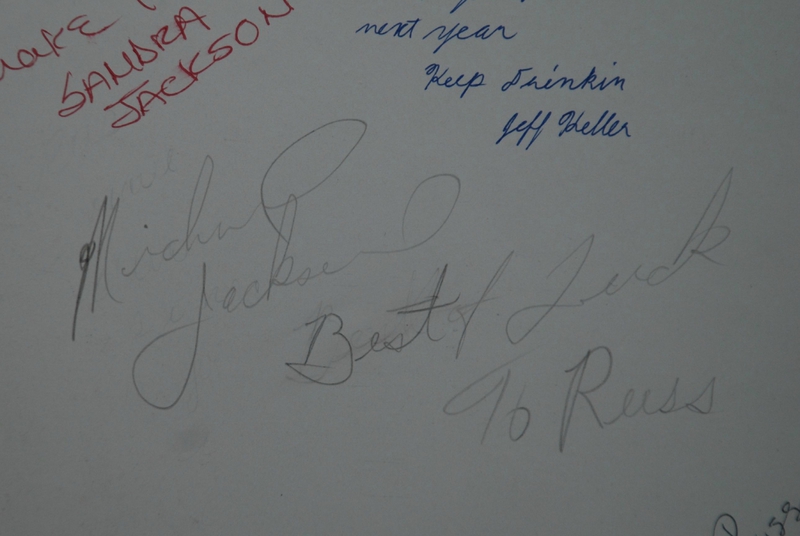 MAKE
SANDRA
JACKSON
next year
Keep Drinkin
Jeff Keller
Michael
Jackson
Best of Luck
To Russ